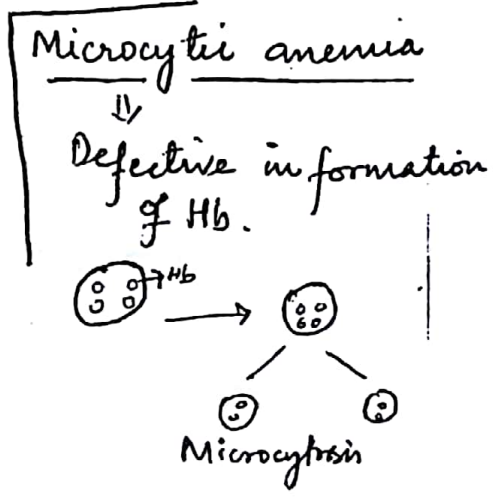 Microcytic anemia
Defective in formation
of Hb.
Hb
Microcytosis